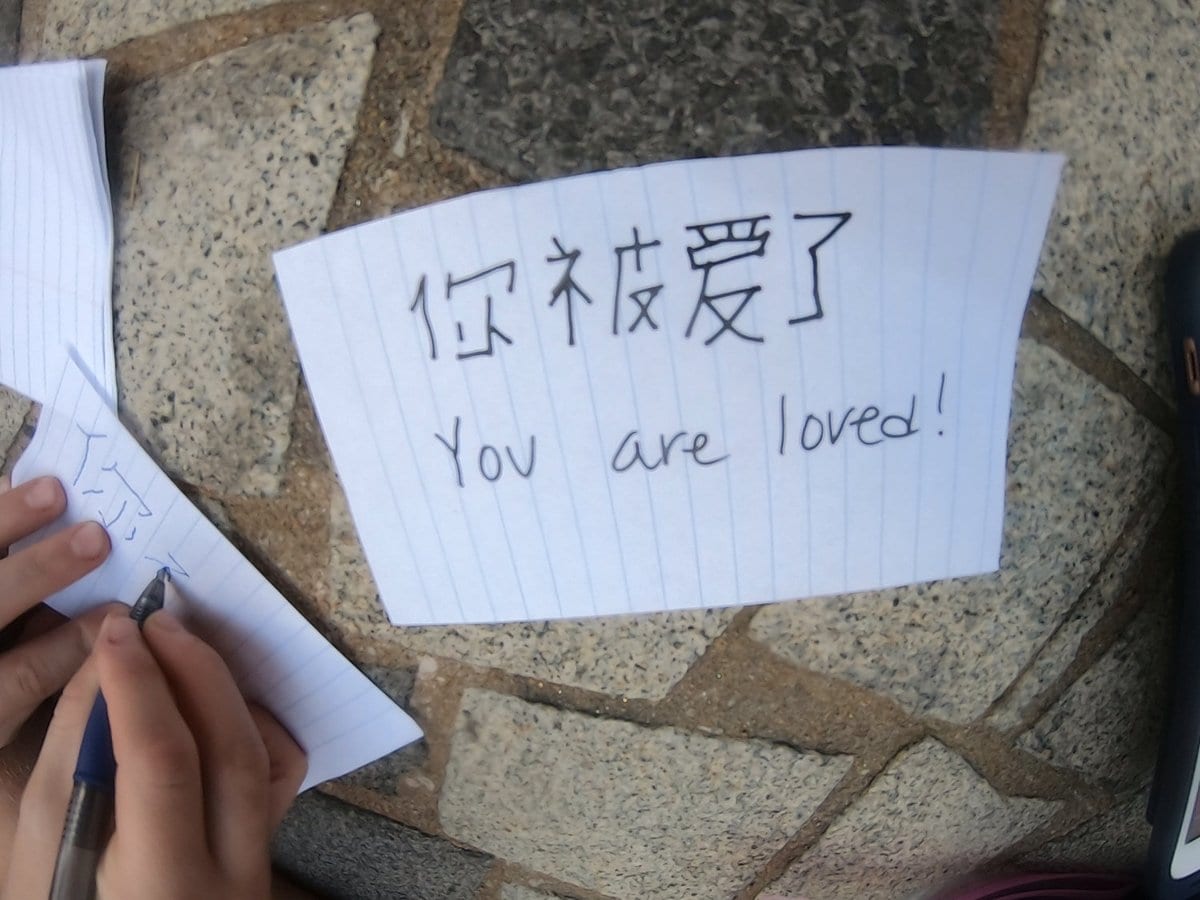 你被爱了
You are loved!